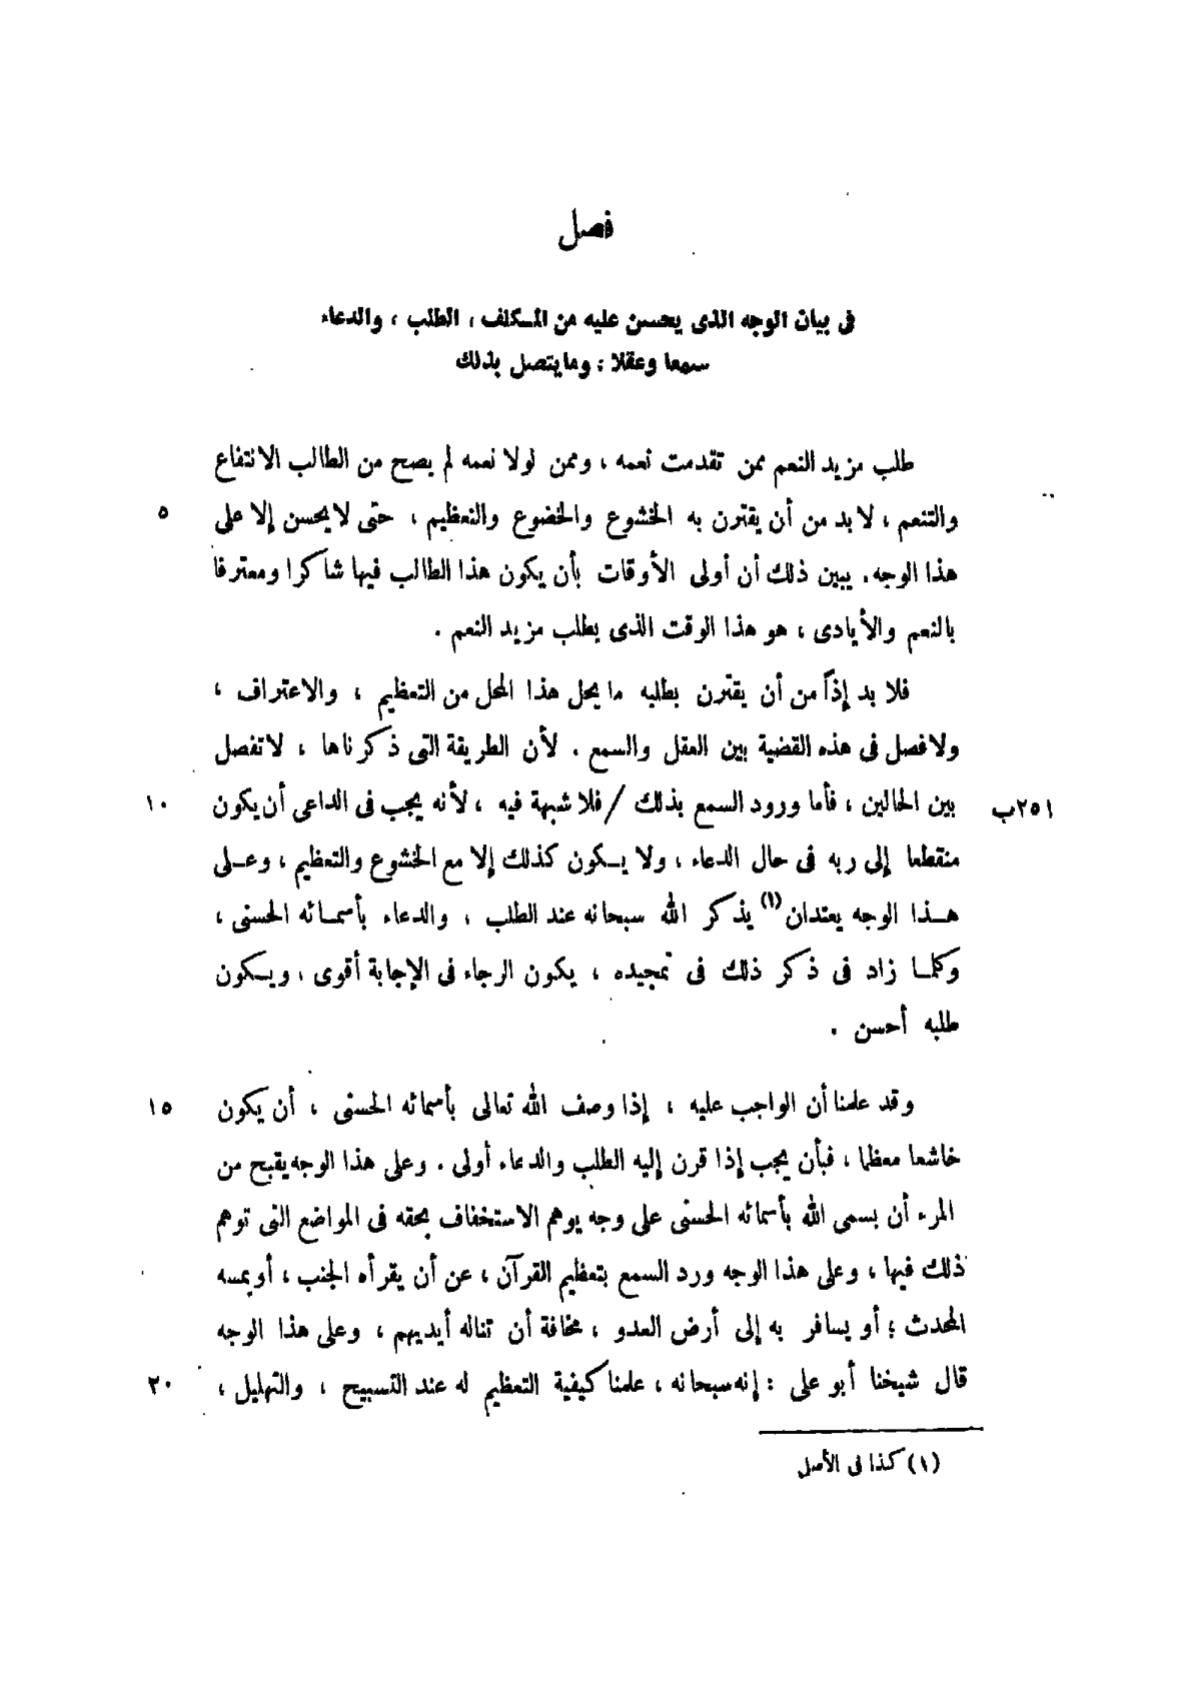 فصل
فى بيان الوجه الذى يحسن عليه من المكلف ، الطلب ، والدعاء
سمعا وعقلا ؛ وما يتصل بذلك
طلب مزيد النعم ممن تقدمت نعمه ، وممن لولا نعمه لم يصح من الطالب الانتفاع
والتنعم ، لا بد من أن يقترن به الخشوع والخضوع والتعظيم ، حتى لا يحسن إلا على ٥
هذا الوجه . يبين ذلك أن أولى الأوقات بأن يكون هذا الطالب فيها شاكرا ومعترفا
بالنعم والأيادى ، هو هذا الوقت الذى يطلب مزيد النعم .
فلا بد إذاً من أن يقترن بطلبه ما يحل هذا المحل من التعظيم ، والاعتراف ،
ولا فصل فى هذه القضية بين العقل والسمع . لأن الطريقة التى ذكرناها ، لا تفصل
٢٥١ب بين الحالين ، فأما ورود السمع بذلك / فلا شبهة فيه ، لأنه يجب فى الداعى أن يكون ١٠
منقطعا إلى ربه فى حال الدعاء ، ولا يكون كذلك إلا مع الخشوع والتعظيم ، وعلى
هذا الوجه يعتدان(١) يذكر الله سبحانه عند الطلب ، والدعاء بأسمائه الحسنى ،
وكلما زاد فى ذكر ذلك فى تمجيده ، يكون الرجاء فى الإجابة أقوى ، ويكون
طلبه أحسن .
وقد علمنا أن الواجب عليه ، إذا وصف الله تعالى بأسمائه الحسنى ، أن يكون ١٥
خاشعا معظما ، فبأن يجب إذا قرن إليه الطلب والدعاء أولى . وعلى هذا الوجه يقبح من
المرء أن يسمى الله بأسمائه الحسنى على وجه يوهم الاستخفاف بحقه فى المواضع التى توهم
ذلك فيها ، وعلى هذا الوجه ورد السمع بتعظيم القرآن ، عن أن يقرأه الجنب ، أو يمسه
المحدث ؛ أو يسافر به إلى أرض العدو ، مخافة أن تناله أيديهم ، وعلى هذا الوجه
قال شيخنا أبو على : إنه سبحانه ، علمنا كيفية التعظيم له عند التسبيح ، والتهليل ، ٢٠
(١) كذا فى الأصل